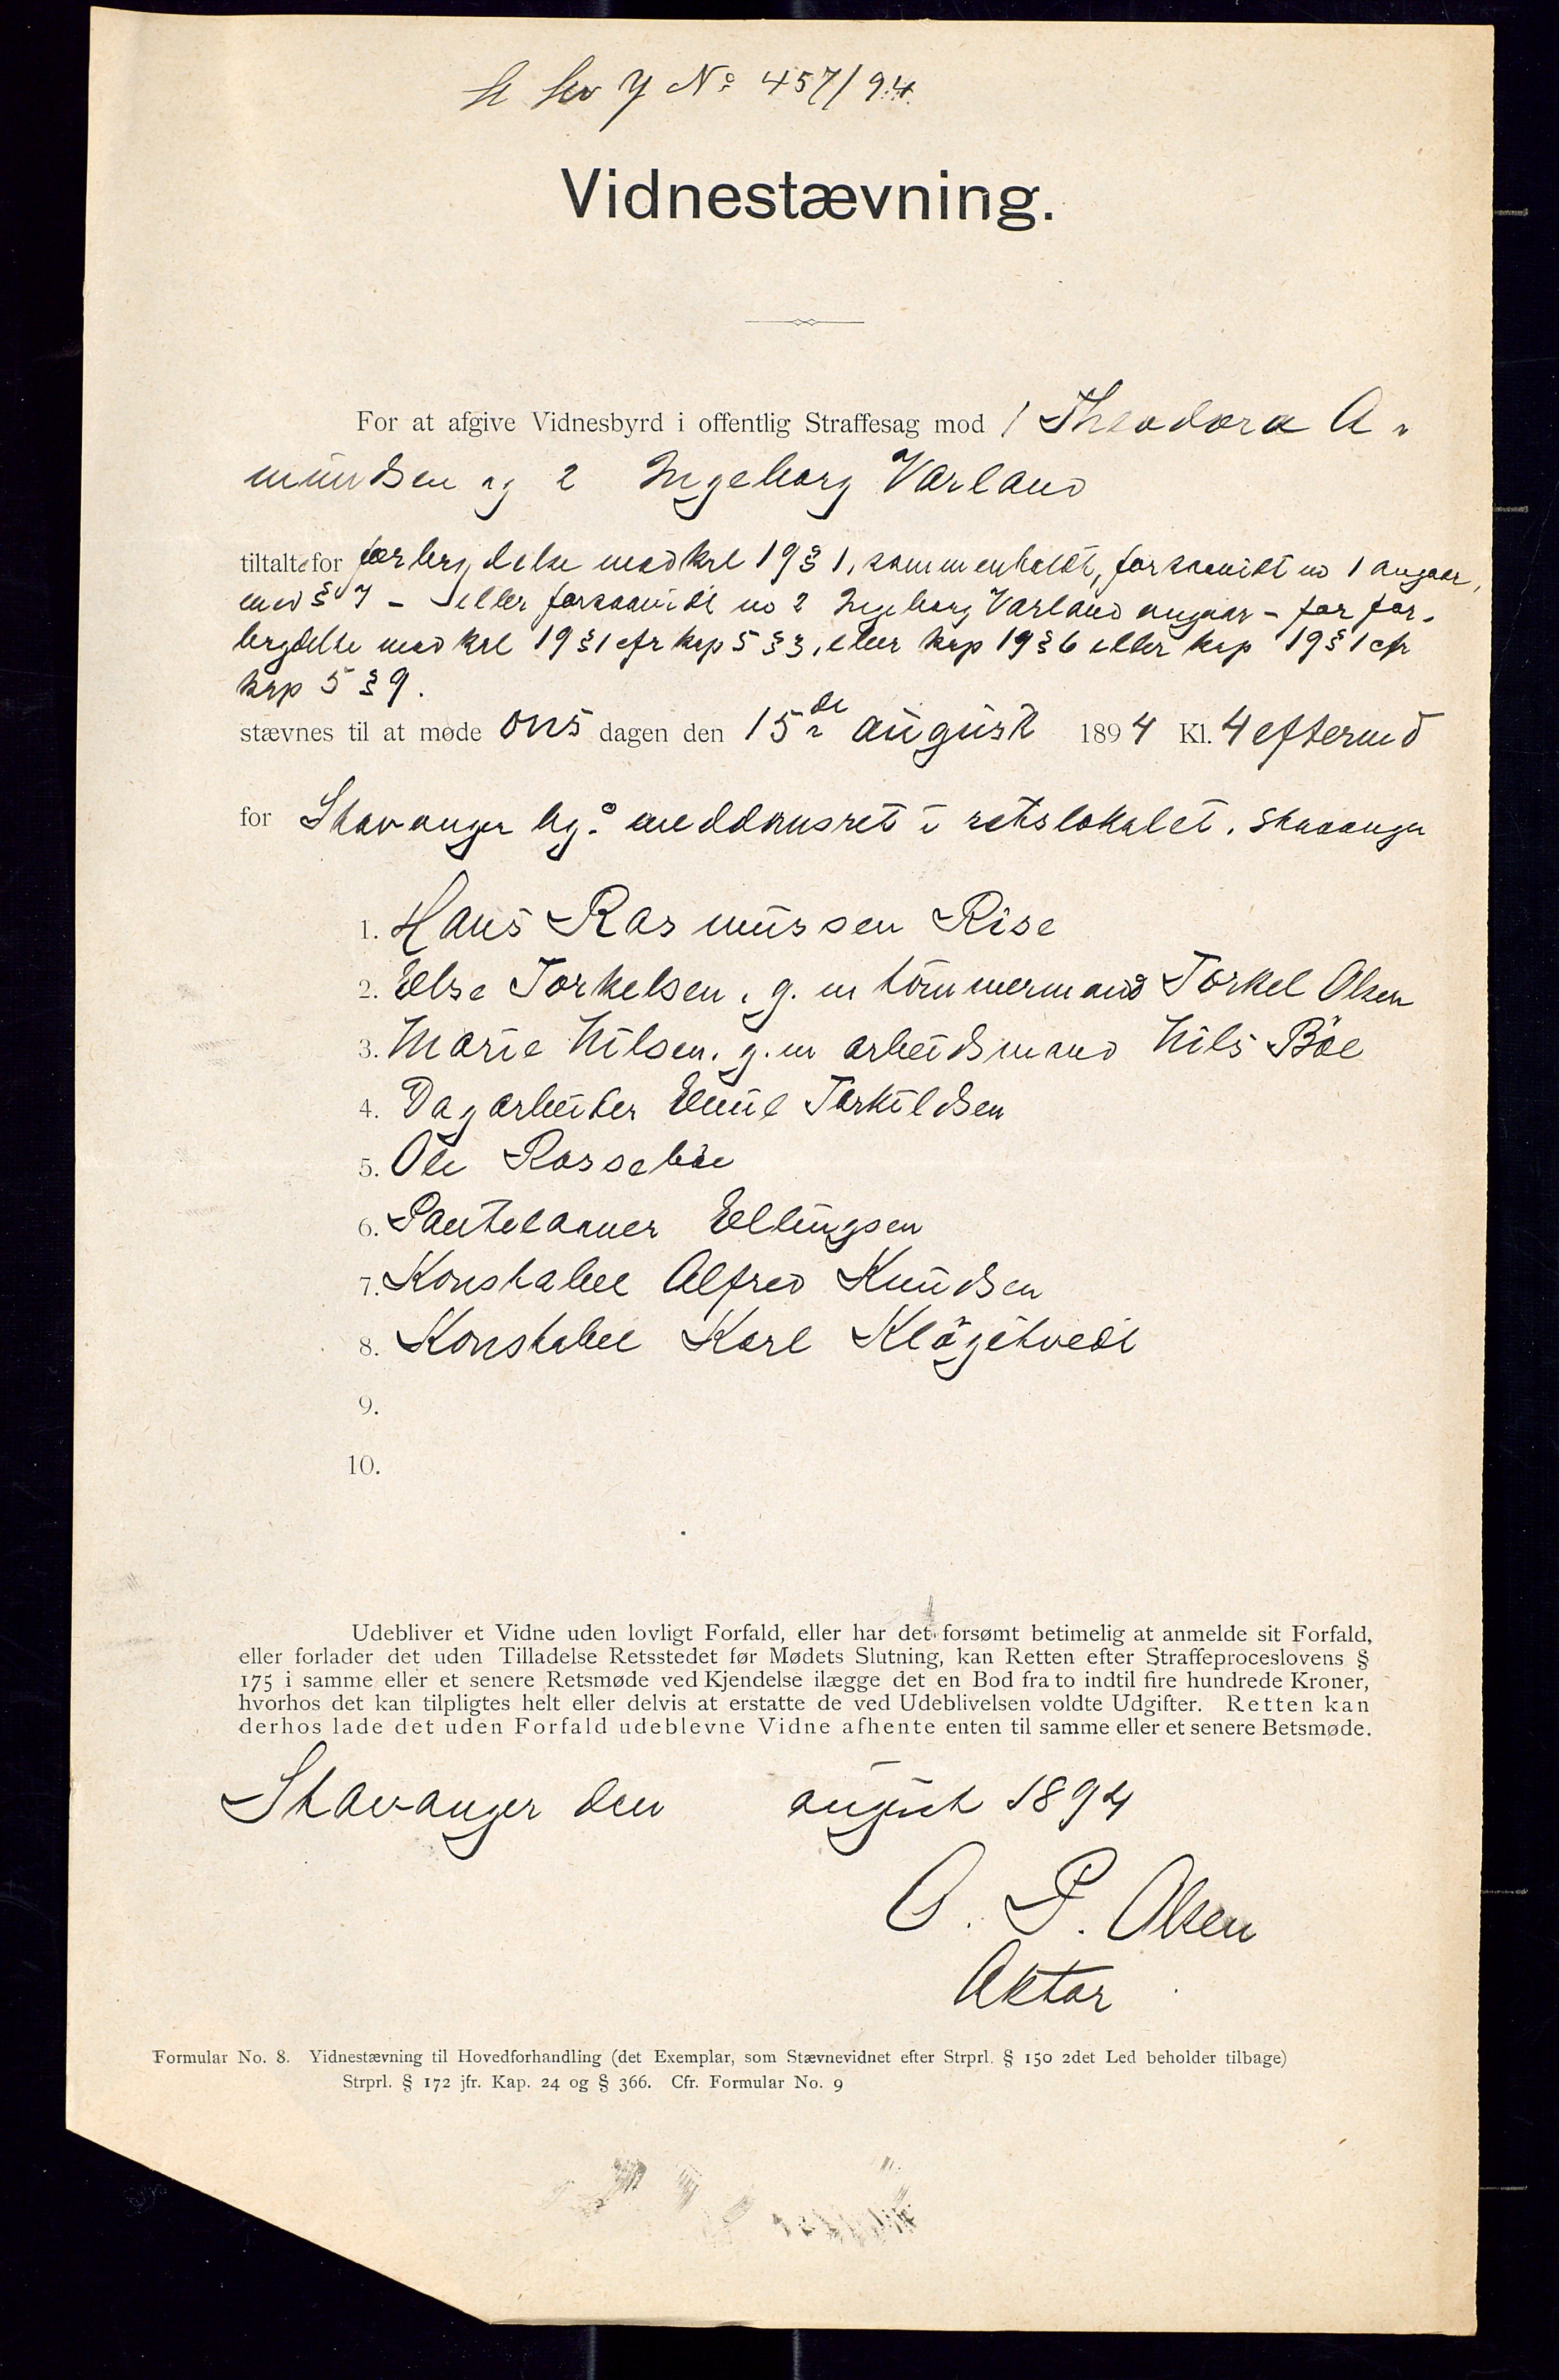 No 457/94.
Vidnestævning.
For at afgive Vidnesbyrd i offentlig Straffesag mod 1 Theodora A-
mundsen og 2 Ingeborg Varland
tiltalte for forbrydelse mod krl 19 § 1, sammenholdt, forsaavidt no 1 angaar,
med § 7 - eller forsaavidt no 2 Ingeborg Varland angaar - for for-
brydelse mod krl 19 § 1 cfr kap 5 § 3, eller kap 19 § 6 eller kap 19 § 1 cfr
kap 5 § 9.
stævnes til at møde ons dagen den 15de august 1894 Kl. 4 eftermd
for Stavanger by: meddomsret i retslokalet, Stavanger
1. Hans Rasmussen Rise
2. Else Torkelsen, g. m tömmermand Torkel Olsen
3. Marie Nilsen, g. m arbeidsmand Nils Böe
4. Dagarbeider Emil Torkildsen
5. Ole Rosseböe
6. Pantelaaner Ellingsen
7. Konstabel Alfred Knudsen
8. Konstabel Karl Klögetvedt
9.
10.
Udebliver et Vidne uden lovligt Forfald, eller har det forsømt betimelig at anmelde sit Forfald,
eller forlader det uden Tilladelse Retsstedet før Mødets Slutning, kan Retten efter Straffeproceslovens §
175 i samme eller et senere Retsmøde ved Kjendelse ilægge det en Bod fra to indtil fire hundrede Kroner,
hvorhos det kan tilpligtes helt eller delvis at erstatte de ved Udeblivelsen voldte Udgifter. Retten kan
derhos lade det uden Forfald udeblevne Vidne afhente enten til samme eller et senere Betsmøde.
Stavanger den august 1894
O. P. Olsen
Aktor
Formular No. 8. Yidnestævning til Hovedforhandling (det Exemplar, som Stævnevidnet efter Strprl. § 150 2det Led beholder tilbage)
Strprl. § 172 jfr. Kap. 24 og § 366. Cfr. Formular No. 9